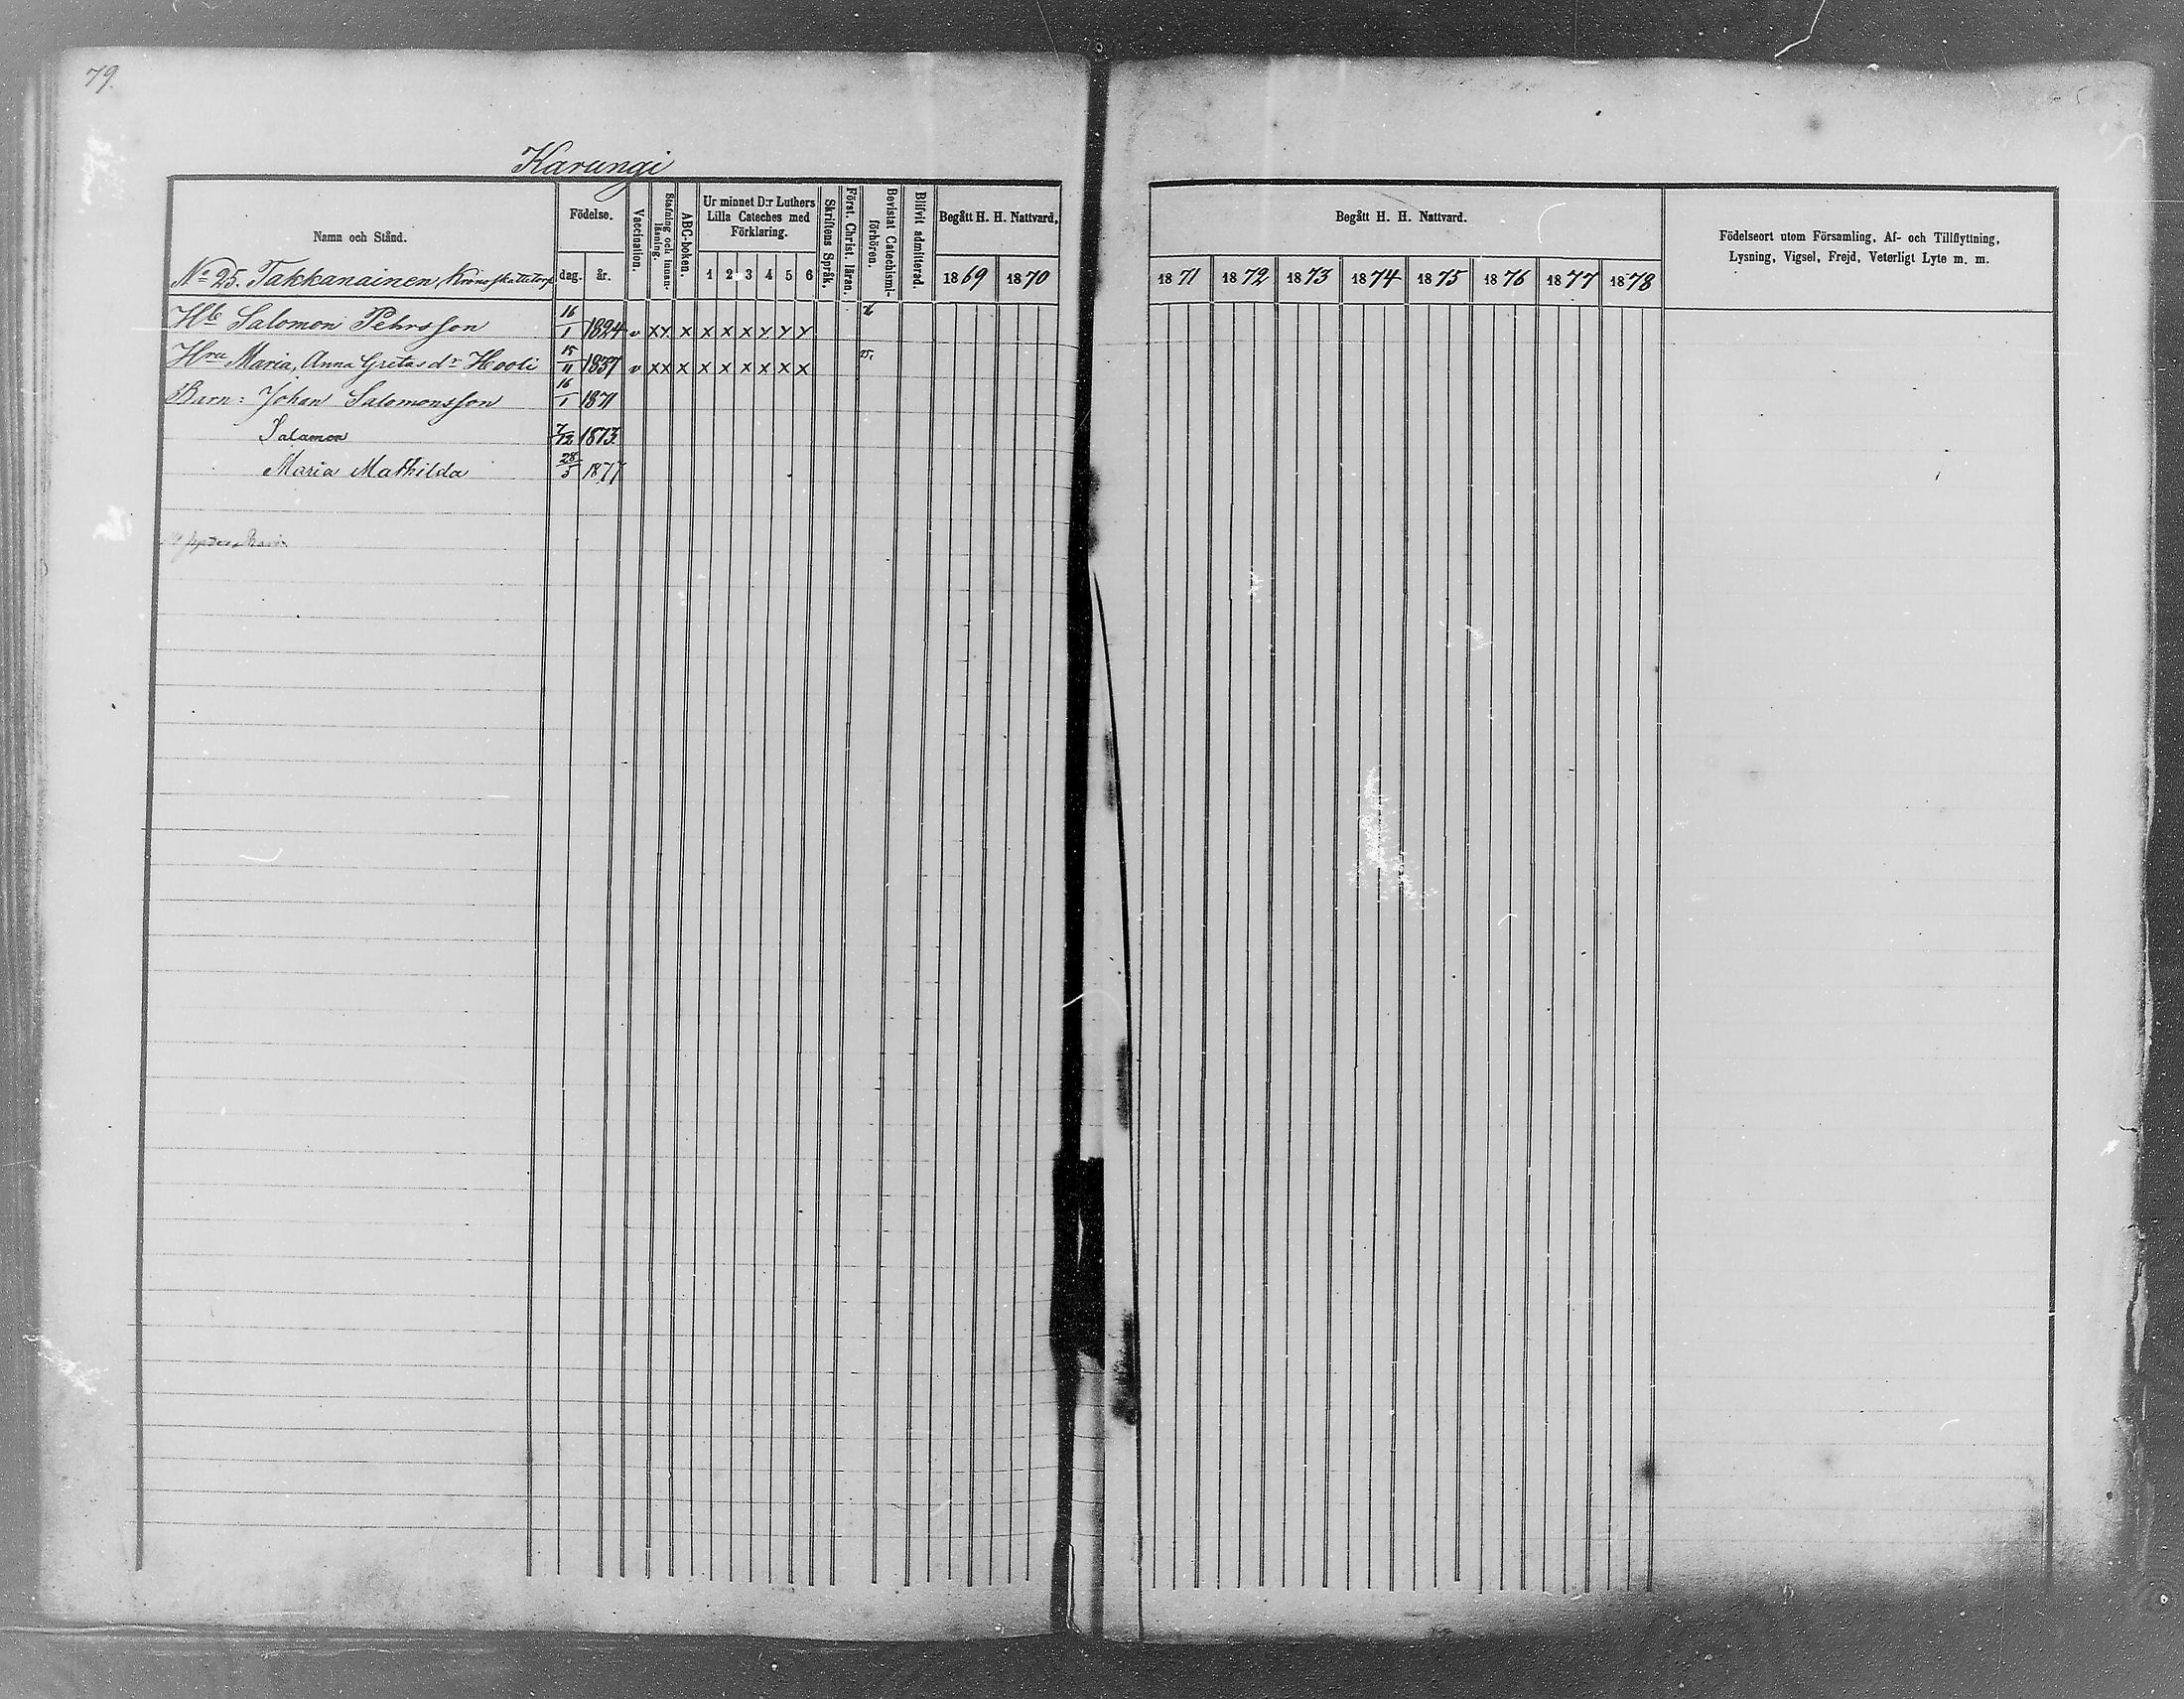 79.
Karungi
Namn och Stånd.
Födelse.
dag.
år.
Vaccination.
Stafning och innan-
läsning.
ABC-boken.
Ur minnet D:r Luthers
Lilla Cateches med
Förklaring.
1 2 3 4 5 6
Skriftens Språk.
Först. Christ. läran.
Bevistat Catechismi-
förhören.
Blifvit admitterad.
Begått H. H. Nattvard.
1869 1870
Begått H. H. Nattvard.
1871 1872 1873 1874 1875 1876 1877 1878
Födelseort utom Församling, Af- och Tillflyttning,
Lysning, Vigsel, Frejd, Veterligt Lyte m. m.
No 25. Takkanainen, Kronoskattetorp
Hb Salomon Pehrsson 16/1 1824 v x x x x x x x x x
Hru Maria, Anna Gretas dr Hooli 15/11 1837 v x x x x x x x x x
Barn: Johan Salomonsson 16/1 1871
Salamon 7/12 1873
Maria Mathilda 28/5 1877